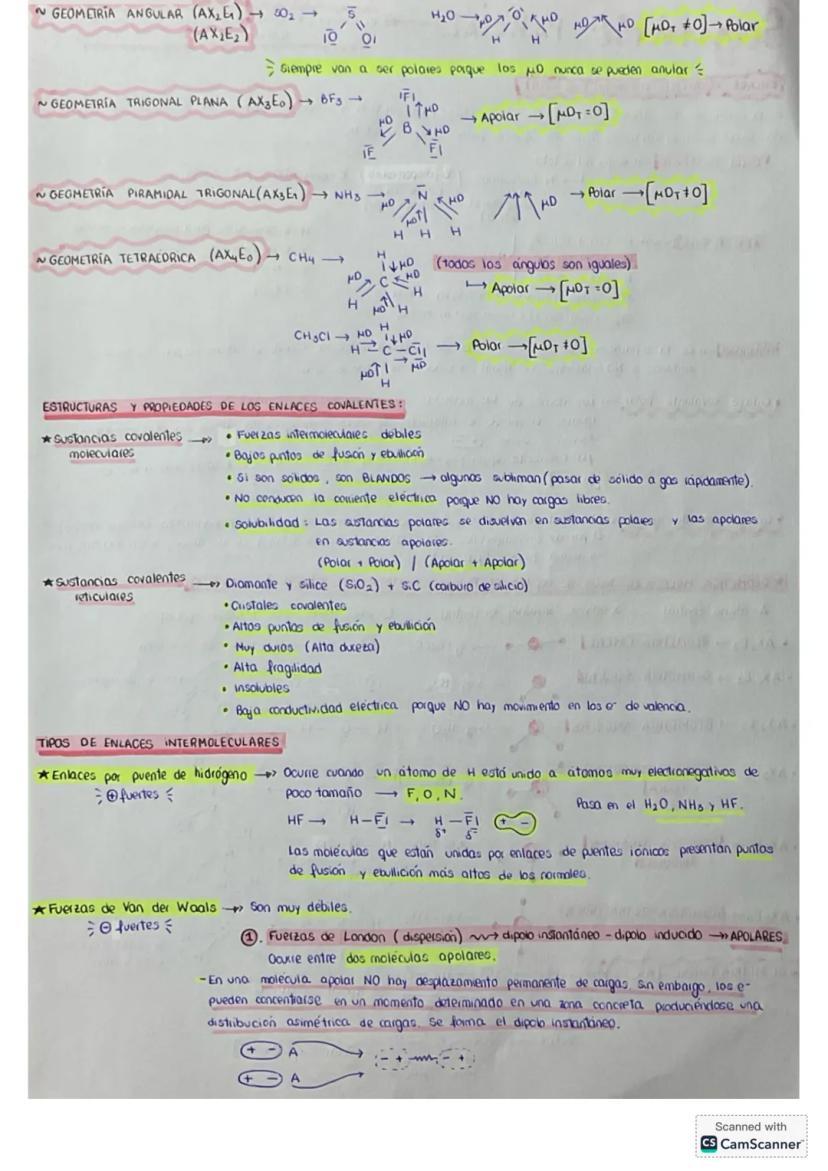 ~ GEOMETRÍA ANGULAR (AX2E1) → SO2 → S H2O → μD O μD μD μD [μDT ≠ 0] → Polar
(AX2E2) |O O| H H
Siempre van a ser polares porque los μD nunca se pueden anular
~ GEOMETRÍA TRIGONAL PLANA (AX3E0) → BF3 → |F| μD → Apolar → [μDT = 0]
μD B μD
|F F|
~ GEOMETRÍA PIRAMIDAL TRIGONAL (AX3E1) → NH3 → μD N μD μD → Polar → [μDT ≠ 0]
μD
H H H
~ GEOMETRÍA TETRAÉDRICA (AX4E0) → CH4 → H μD (todos los ángulos son iguales)
μD C μD H → Apolar → [μDT = 0]
H μD H
CH3Cl → μD H μD
H - C - Cl| → Polar → [μDT ≠ 0]
μD H μD
ESTRUCTURAS Y PROPIEDADES DE LOS ENLACES COVALENTES:
★ Sustancias covalentes → • Fuerzas intermoleculares débiles
moleculares • Bajos puntos de fusión y ebullición
• Si son sólidos, son BLANDOS → algunos subliman (pasar de sólido a gas rápidamente).
• No conducen la corriente eléctrica porque NO hay cargas libres.
• Solubilidad: Las sustancias polares se disuelven en sustancias polares y las apolares
en sustancias apolares.
(Polar + Polar) / (Apolar + Apolar)
★ Sustancias covalentes → Diamante y sílice (SiO2) + SiC (carburo de silicio)
reticulares • Cristales covalentes
• Altos puntos de fusión y ebullición
• Muy duros (Alta dureza)
• Alta fragilidad
• Insolubles
• Baja conductividad eléctrica porque NO hay movimiento en los e- de valencia.
TIPOS DE ENLACES INTERMOLECULARES
★ Enlaces por puente de hidrógeno → Ocurre cuando un átomo de H está unido a átomos muy electronegativos de
⊕ fuertes poco tamaño → F, O, N. Pasa en el H2O, NH3 y HF.
HF → H - F| → H - F| + -
δ+ δ-
Las moléculas que están unidas por enlaces de puentes iónicos presentan puntos
de fusión y ebullición más altos de los normales.
★ Fuerzas de Van der Waals → Son muy débiles.
⊖ fuertes
①. Fuerzas de London (dispersión) → dipolo instantáneo - dipolo inducido → APOLARES
Ocurre entre dos moléculas apolares.
- En una molécula apolar NO hay desplazamiento permanente de cargas, sin embargo, los e-
pueden concentrarse en un momento determinado en una zona concreta produciéndose una
distribución asimétrica de cargas. Se forma el dipolo instantáneo.
+ - A - + - +
+ - A
Scanned with
CS CamScanner